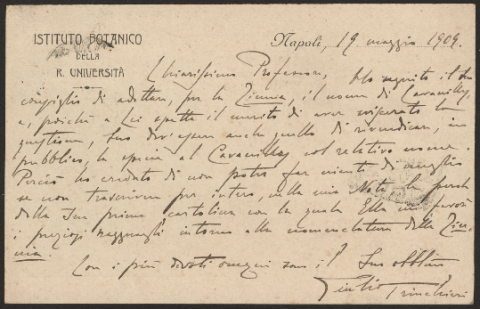 ISTITUTO BOTANICO
DELLA
R. UNIVERSITÀ
Napoli, 19 maggio 1909.
Chiarissimo Professore, ho seguito il Suo
consiglio di adottare, per la Zinnia, il nome di Cavanilles,
e, poichè a Lei spetta il merito di aver risoluto la
questione, Suo dev'essere anche quello di rivendicare, in
pubblico, la specie al Cavanilles col relativo nome.
Perciò ho creduto di non poter far niente di meglio
se non trascrivere per intero, nella mia Nota, la parte
della Sua prima cartolina con la quale Ella mi favorì
i preziosi ragguagli intorno alla nomenclatura della Zin-
nia.
Con i più devoti omaggi sono il Suo obbl.mo
Giulio Trinchieri